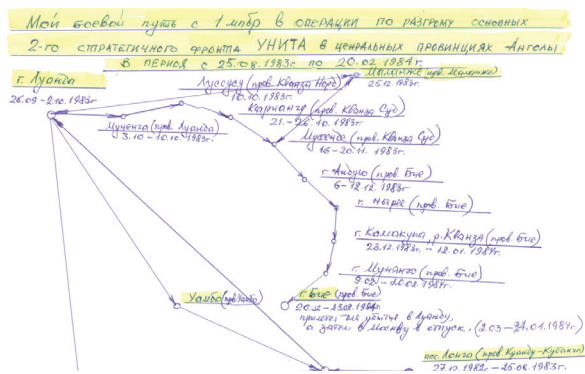 Мой боевой путь с 1 мпбр в операции по разгрому основных
2-го стратегичного фронта УНИТА в центральных провинциях Анголы
в период с 25.08.1983г. по 20.02.1984г.
г. Луанда
26.09–2.10.1983г.
Мученга (пров. Луанда)
3.10–10.10.1983г.
Луссуса (пров. Кванза Норд)
10.10.1983г.
Маланже (пров. Маланже)
25.12.1983г.
Кариангу (пров. Кванза Суд)
21.–26.10.1983г.
Мусенде (пров. Кванза Суд)
16–20.11.1983г.
г. Андуло (пров. Бие)
6–12.12.1983г.
г. Ньареа (пров. Бие)
г. Камакупа, р. Кванза (пров. Бие)
23.12.1983г.–12.01.1984г.
г. Муньянго (пров. Бие)
9.02–20.02.1984г.
г. Бие (пров. Бие)
20.02–23.02.1984г.
прилетел для убытия в Луанду,
а затем в Москву в отпуск. (2.03–
Уамбо (пров. Уамбо)
пос. Лонга (пров. Куанду-Кубанго)
27.12.1982–25.08.1983г.